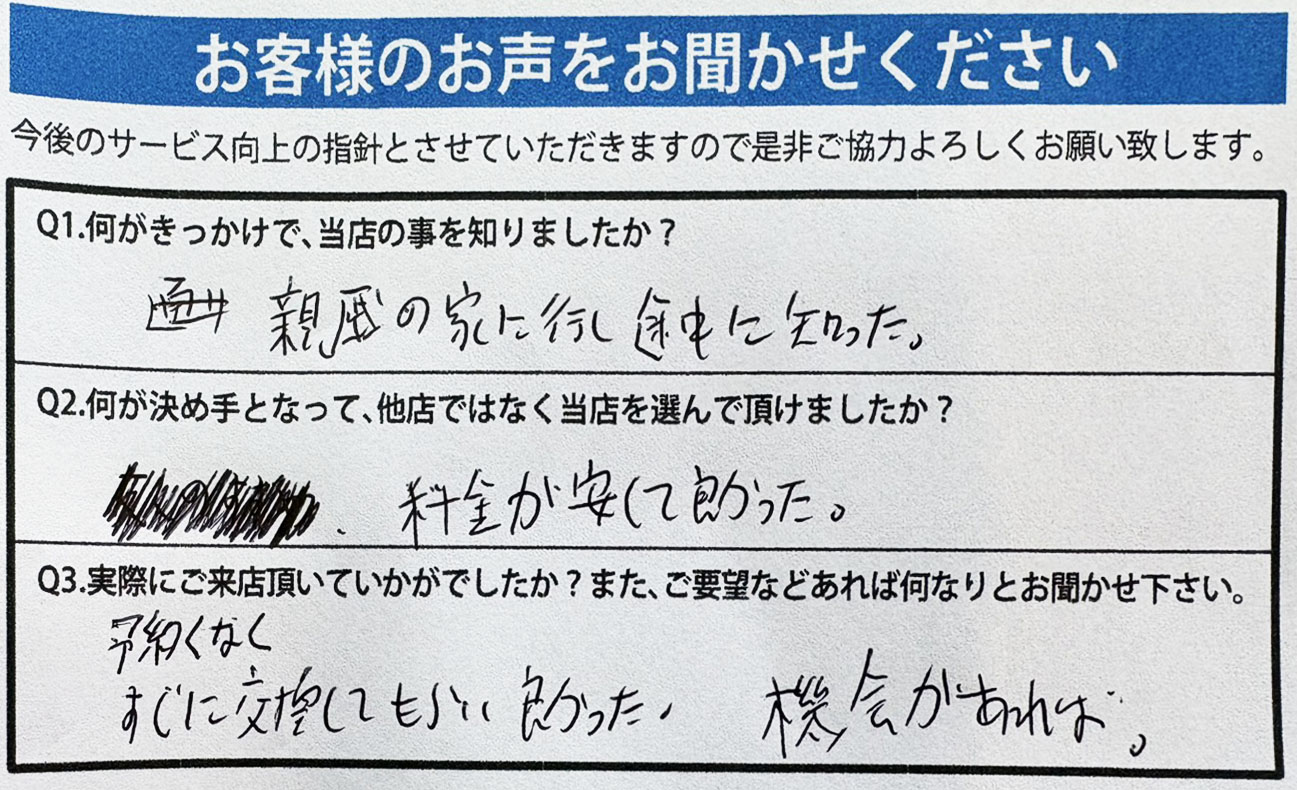 お客様のお声をお聞かせください
今後のサービス向上の指針とさせていただきますので是非ご協力よろしくお願い致します。
Q1.何がきっかけで、当店の事を知りましたか？
親戚の家に行く途中に知った。
Q2.何が決め手となって、他店ではなく当店を選んで頂けましたか？
料金が安くて良かった。
Q3.実際にご来店頂いていかがでしたか？また、ご要望などあれば何なりとお聞かせ下さい。
予約くなく
すぐに交換してもらい良かった。 機会があれば。